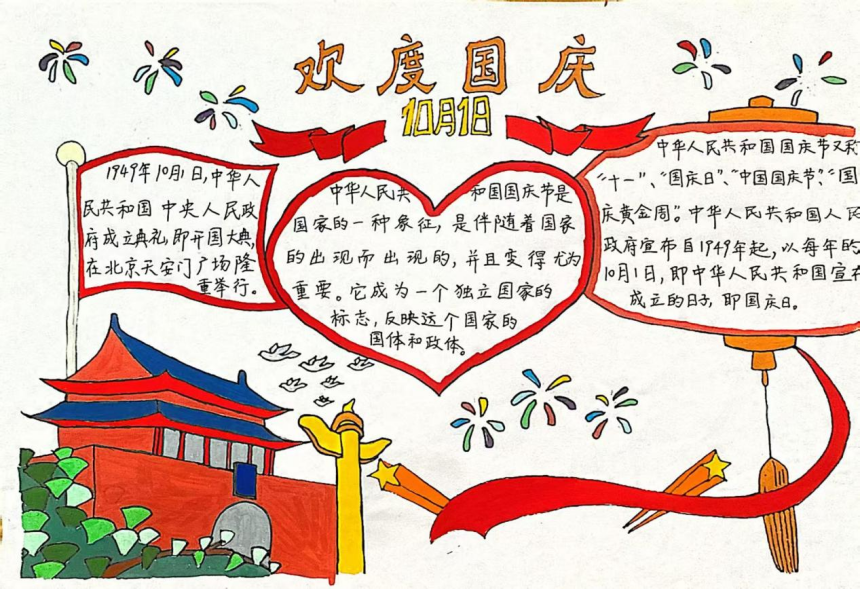 欢度国庆
10月1日
1949年10月1日,中华人
民共和国中央人民政
府成立典礼,即开国大典,
在北京天安门广场隆
重举行。
中华人民共和国国庆节是
国家的一种象征,是伴随着国家
的出现而出现的,并且变得尤为
重要。它成为一个独立国家的
标志,反映这个国家的
国体和政体。
中华人民共和国国庆节又称
“十一”、“国庆日”、“中国国庆节”、“国
庆黄金周”。中华人民共和国人民
政府宣布自1949年起,以每年的
10月1日,即中华人民共和国宣布
成立的日子,即国庆日。